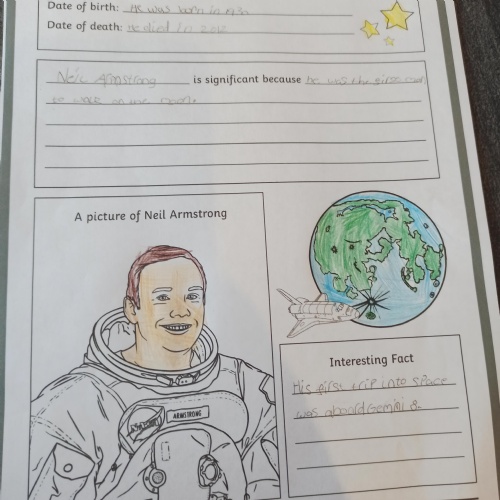 Date of birth: He was born in 193
Date of death: He died in 2012
Neil Armstrong is significant because he was the first man
to walk on the moon.
A picture of Neil Armstrong
ARMSTRONG
Interesting Fact
His first trip into space
was aboard Gemini 8.